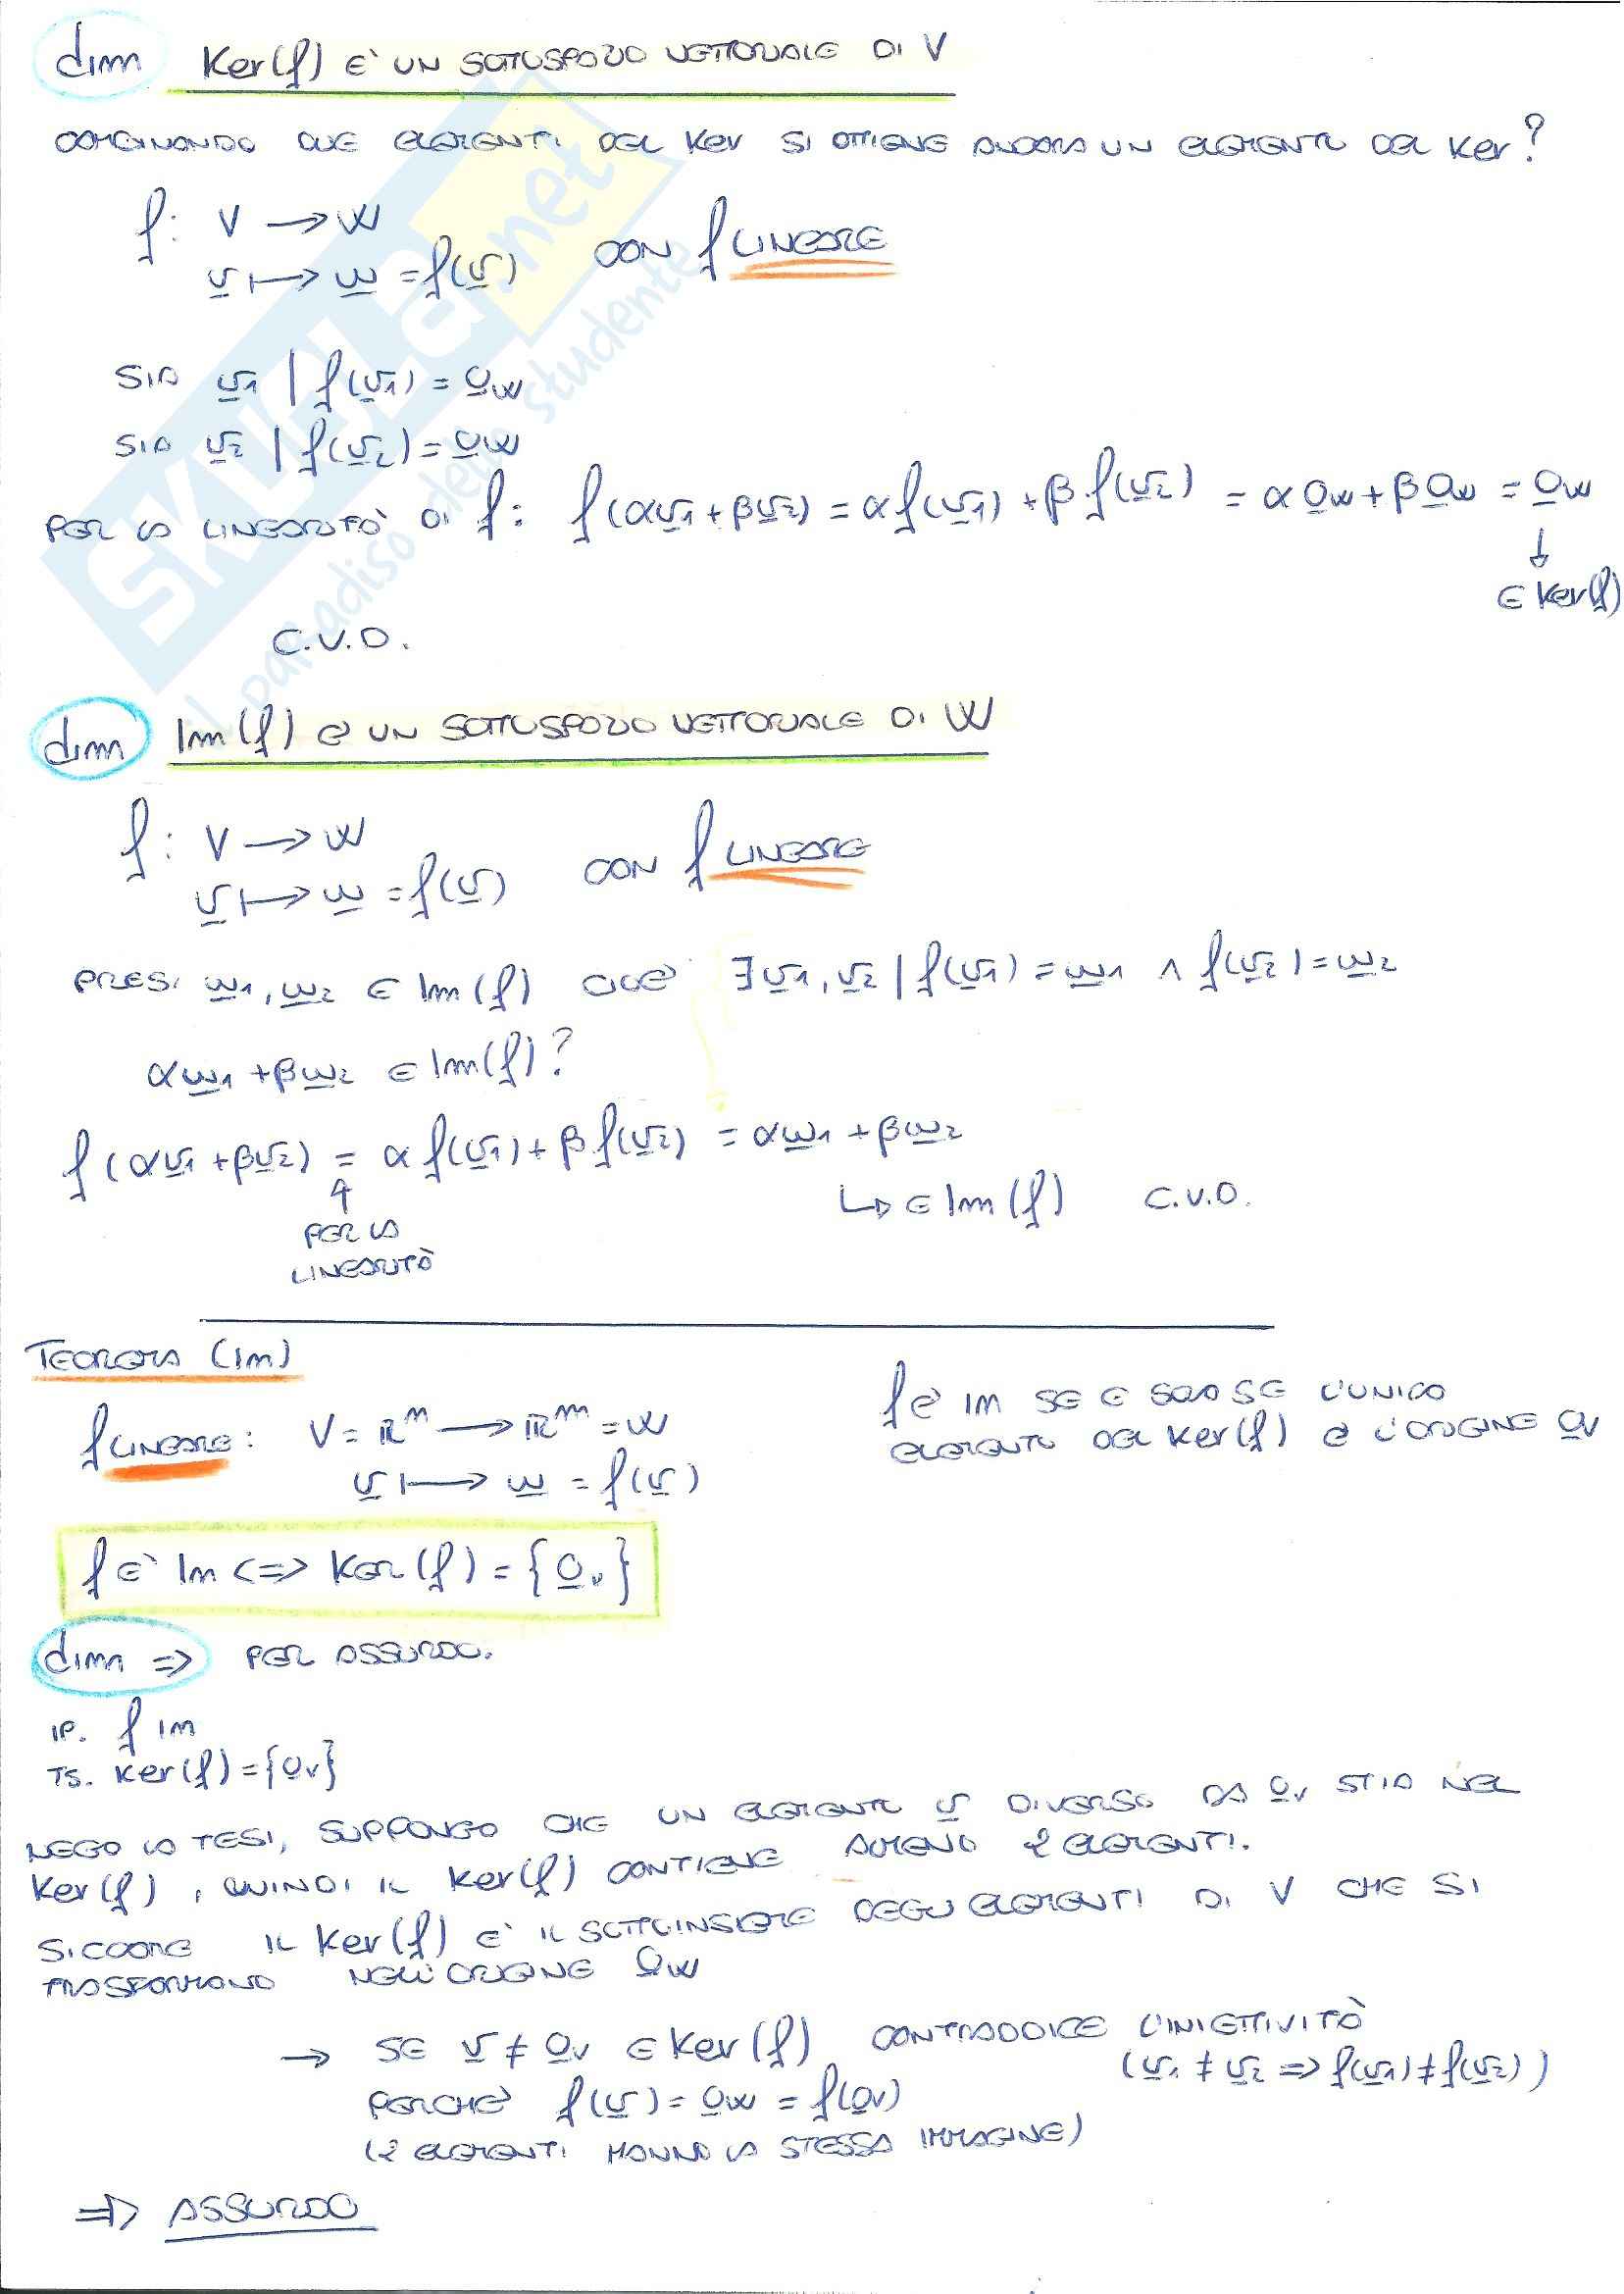 dim Ker(f) E' UN SOTTOSPAZIO VETTORIALE DI V
COMBINANDO DUE ELEMENTI DEL Ker SI OTTIENE ANCORA UN ELEMENTO DEL Ker?
f: V → W
v ↦ w = f(v) CON f LINEARE
SIA v1 | f(v1) = 0w
SIA v2 | f(v2) = 0w
PER LA LINEARITÀ DI f: f(αv1 + βv2) = αf(v1) + βf(v2) = α0w + β0w = 0w
↓
∈ Ker(f)
C.V.D.
dim Im(f) è UN SOTTOSPAZIO VETTORIALE DI W
f: V → W
v ↦ w = f(v) CON f LINEARE
PRESI w1, w2 ∈ Im(f) CIOÈ ∃ v1, v2 | f(v1) = w1 ∧ f(v2) = w2
αw1 + βw2 ∈ Im(f)?
f(αv1 + βv2) = αf(v1) + βf(v2) = αw1 + βw2
↑
PER LA
LINEARITÀ
↳ ∈ Im(f) C.V.D.
TEOREMA (IM)
f LINEARE: V = ℝⁿ → ℝᵐ = W
v ↦ w = f(v)
f è IM SE E SOLO SE L'UNICO
ELEMENTO DEL Ker(f) È L'ORIGINE 0v
f E' IM <=> KER(f) = {0v}
dim => PER ASSURDO.
IP. f IM
TS. Ker(f) = {0v}
NEGO LA TESI, SUPPONGO CHE UN ELEMENTO v DIVERSO DA 0v STIA NEL
Ker(f), QUINDI IL Ker(f) CONTIENE ALMENO 2 ELEMENTI.
SICCOME IL Ker(f) E' IL SOTTOINSIEME DEGLI ELEMENTI DI V CHE SI
TRASFORMANO NELL'ORIGINE 0w
→ SE v ≠ 0v ∈ Ker(f) CONTRADDICE L'INIETTIVITÀ
(v1 ≠ v2 => f(v1) ≠ f(v2))
PERCHÈ f(v) = 0w = f(0v)
(2 ELEMENTI HANNO LA STESSA IMMAGINE)
=> ASSURDO
SKUOLA.net
il paradiso dello studente